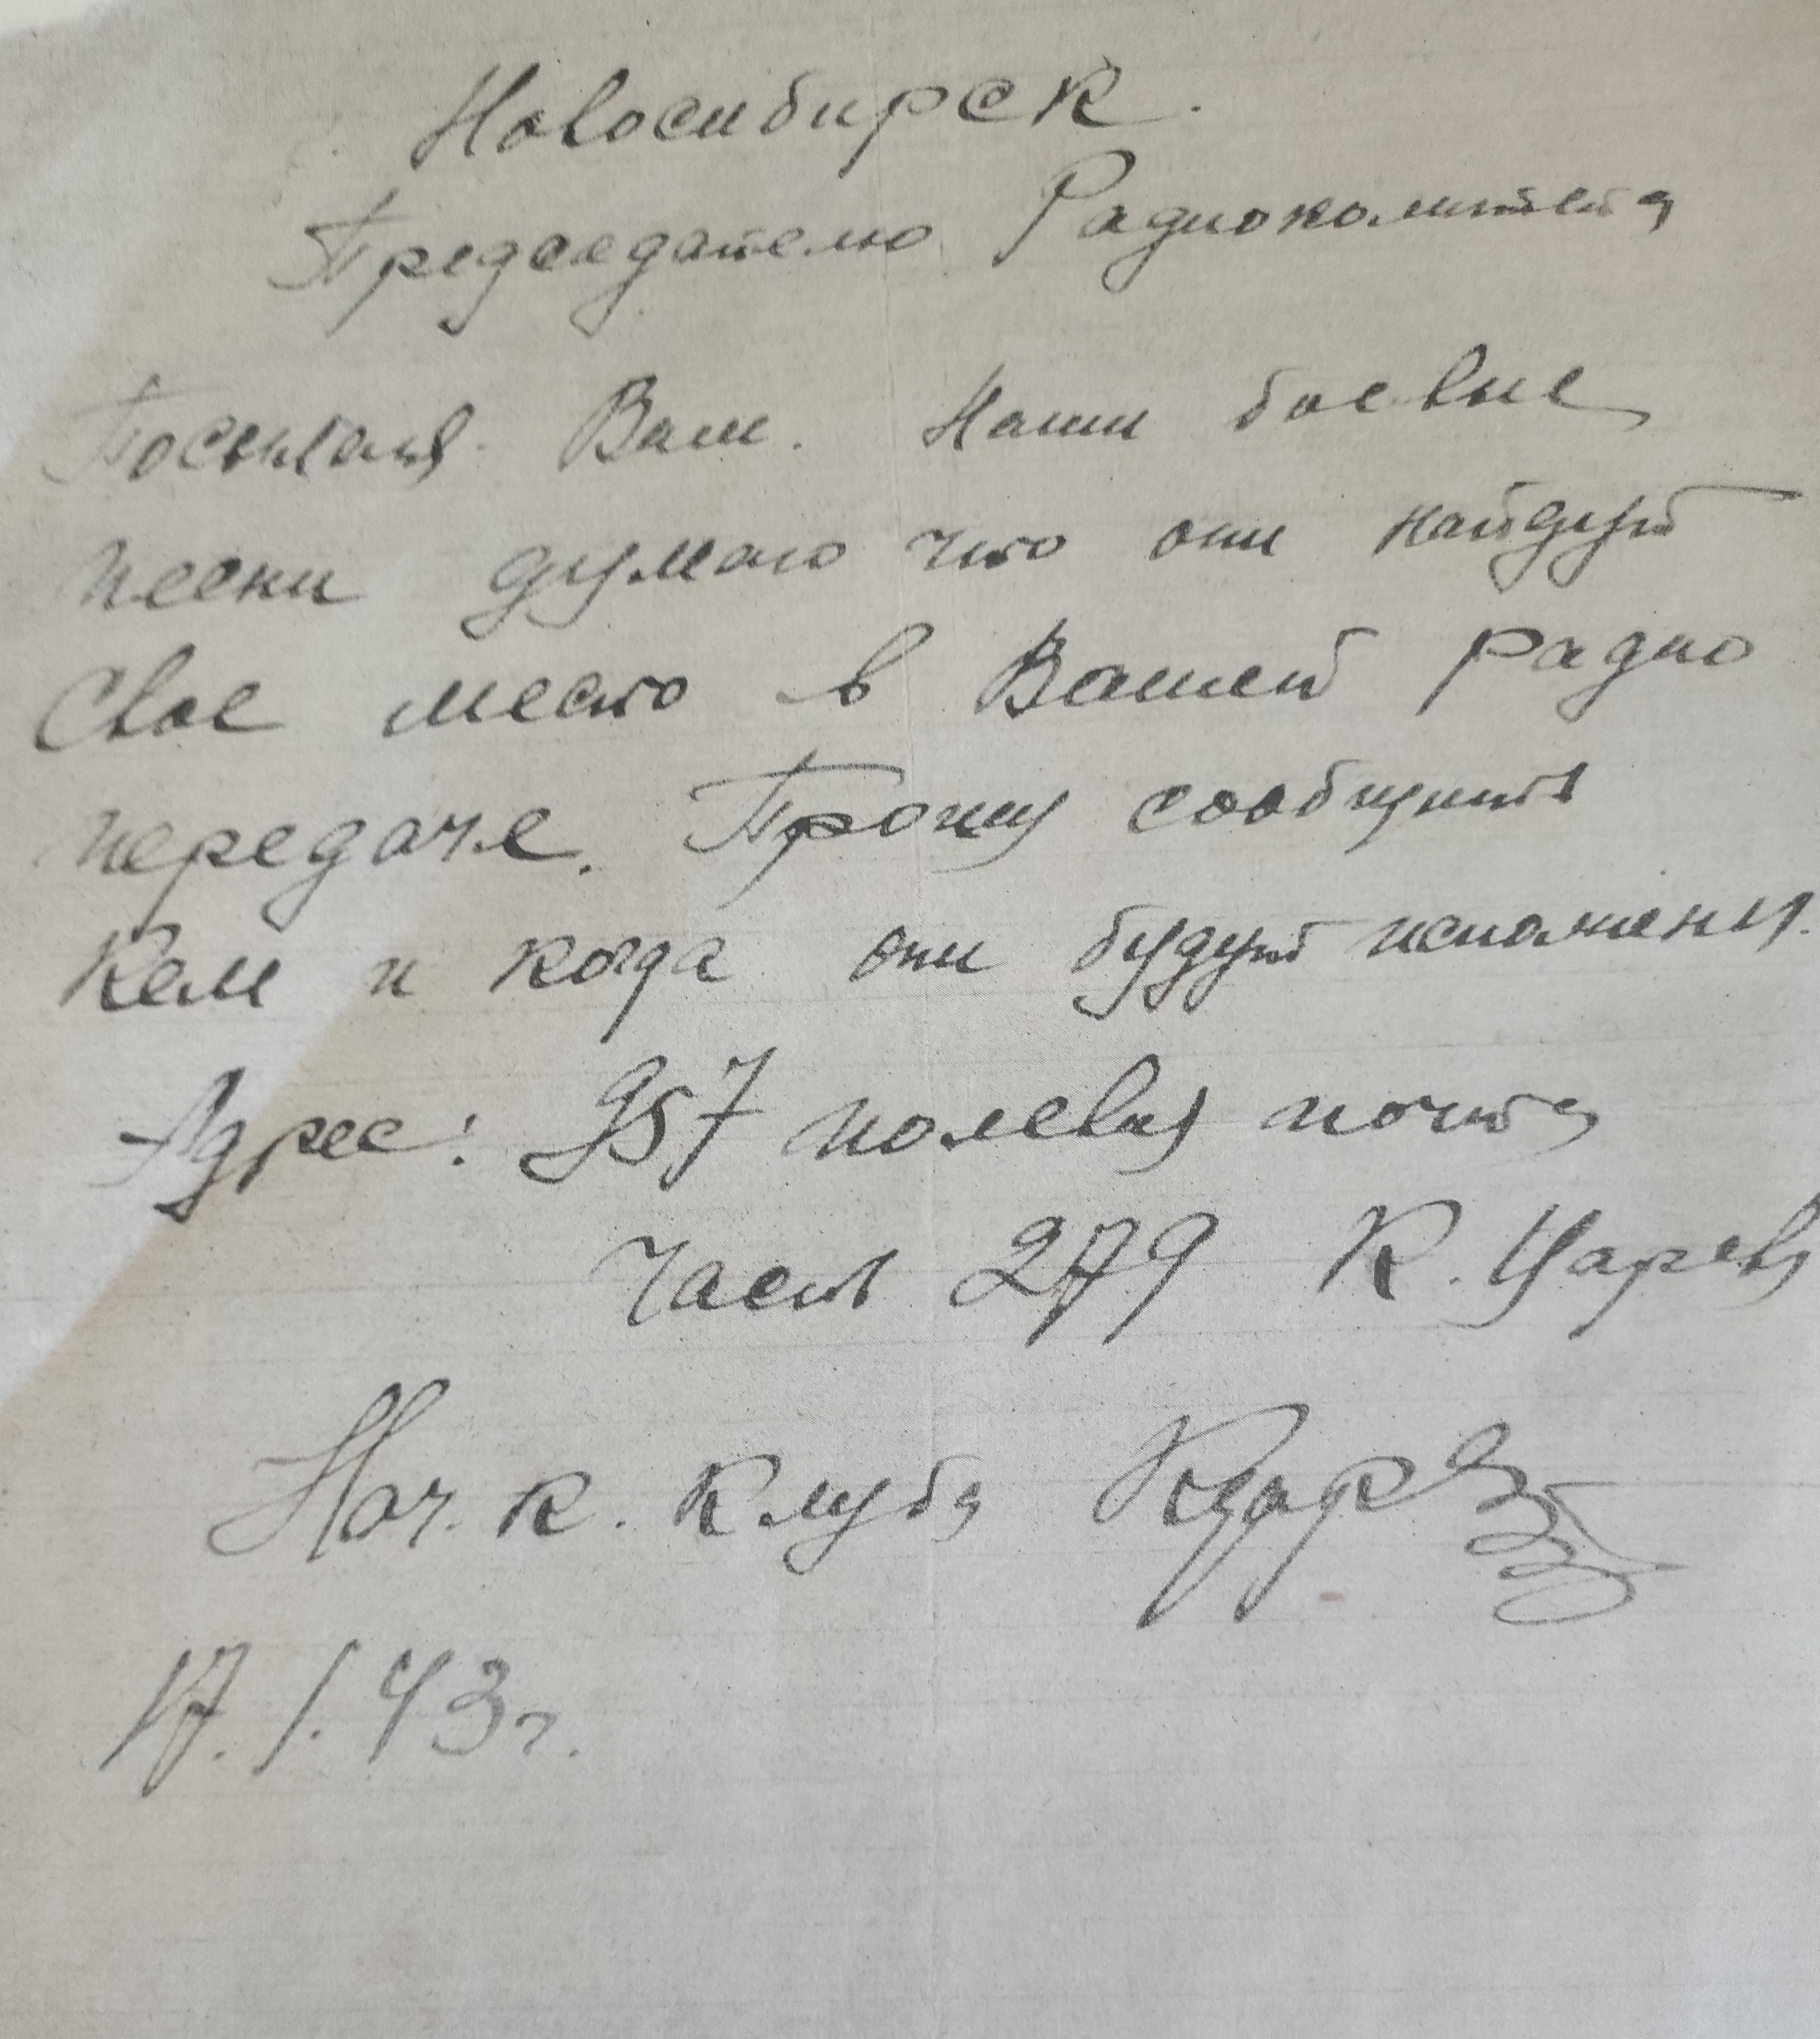 Новосибирск.
Председателю Радиокомитета
Посылая Вам. Наши боевые
песни думаю что они найдут
Свое место в Вашей радио
передаче. Прошу сообщить
Кем и когда они будут исполнены.
Адрес: 957 полевая почта
Часть 279 К. Царев
Нач. к. Клуба КЦарев
17.1.43г.